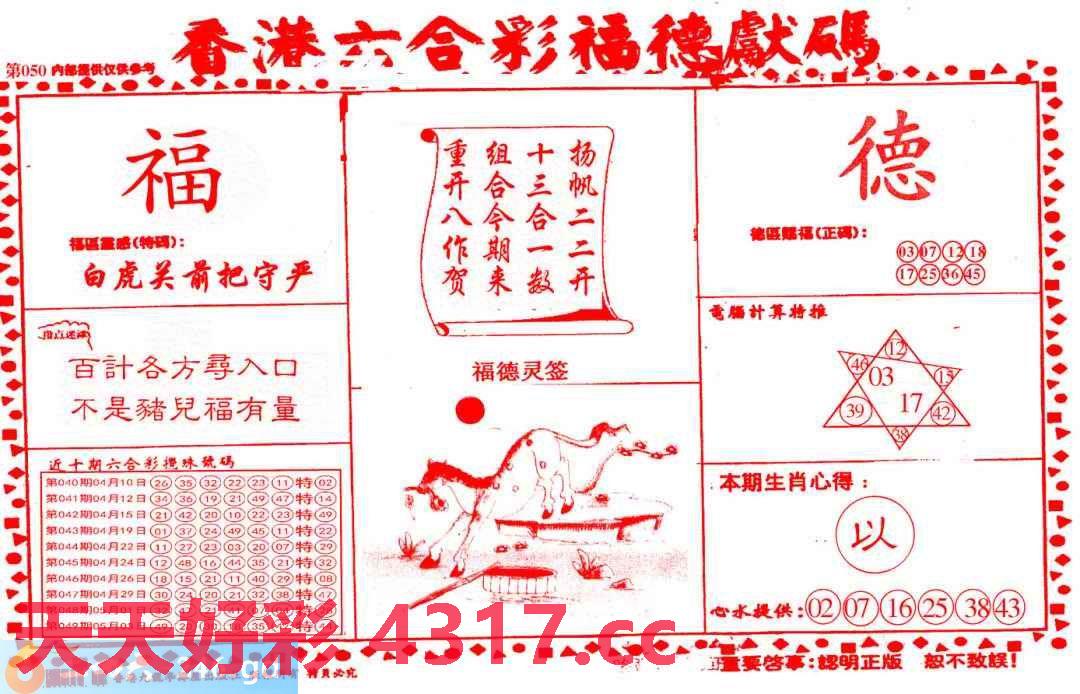 香港六合彩福德獻碼
第050 内部提供仅供参考
福
福區靈感(特碼):
白虎关前把守严
指点迷津
百計各方尋入口
不是豬兒福有量
近十期六合彩攪珠號碼
第040期04月10日 26 35 32 22 23 11 特 02
第041期04月12日 34 36 19 21 49 47 特 14
第042期04月15日 21 42 20 10 22 23 特 49
第043期04月19日 01 37 24 49 45 11 特 22
第044期04月22日 11 27 23 03 20 07 特 29
第045期04月24日 12 48 16 44 35 21 特 32
第046期04月26日 18 15 21 11 40 29 特 08
第047期04月29日 30 24 20 21 32 38 特 47
第048期05月01日
第049期05月03日
扬帆二二开
十三合一数
组合今期来
重开八作贺
福德灵签
德
德區賜福(正碼):
03 07 12 18
17 25 36 45
電腦計算特推
12
46 03 15
39 17 42
38
本期生肖心得:
以
心水提供: 02 07 16 25 38 43
天天好彩 4317.cc
重要啓事:認明正版 恕不致誤!